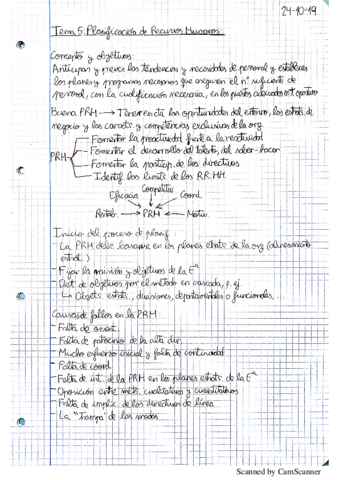 24-10-19
Tema 5: Planificación de Recursos Humanos
Conceptos y objetivos:
Anticipar y prever las tendencias y necesidades de personal y establecer
los planes y programas necesarios que aseguren el nº suficiente de
personal, con la cualificación necesaria, en los puestos adecuados en el t oportuno
Buena PRH → Tiene en cta las oportunidades del entorno, las estrats. de
negocio y los caracts. y competencias exclusivas de la org.
PRH
Fomentar la proactividad frente a la reactividad
Fomentar el desarrollo del talento, del saber-hacer
Fomentar la particip. de los directivos
Identif. los límites de los RR.HH.
Competitiv.
Eficacia Coord.
Rentab. → PRH ← Motiv.
Inicio del proceso de planif.:
- La PRH debe basarse en los planes estrats. de la org (alineamiento
estrat.)
- Fijar la misión y objetivos de la Eª
- Det. de objetivos por el método en cascada, p. ej.
↳ Objets. estrats., divisiones, departamentales o funcionales, ...
Causas de fallos en la PRH:
- Falta de orient.
- Falta de patrocinio de la alta dir.
- Mucho esfuerzo inicial y falta de continuidad
- Falta de coord.
- Falta de int. de la PRH en los planes estrats. de la Eª
- Oposición entre mets. cualitativos y cuantitativos
- Falta de implic. de los directivos de línea
- La "trampa" de las modas
Scanned by CamScanner